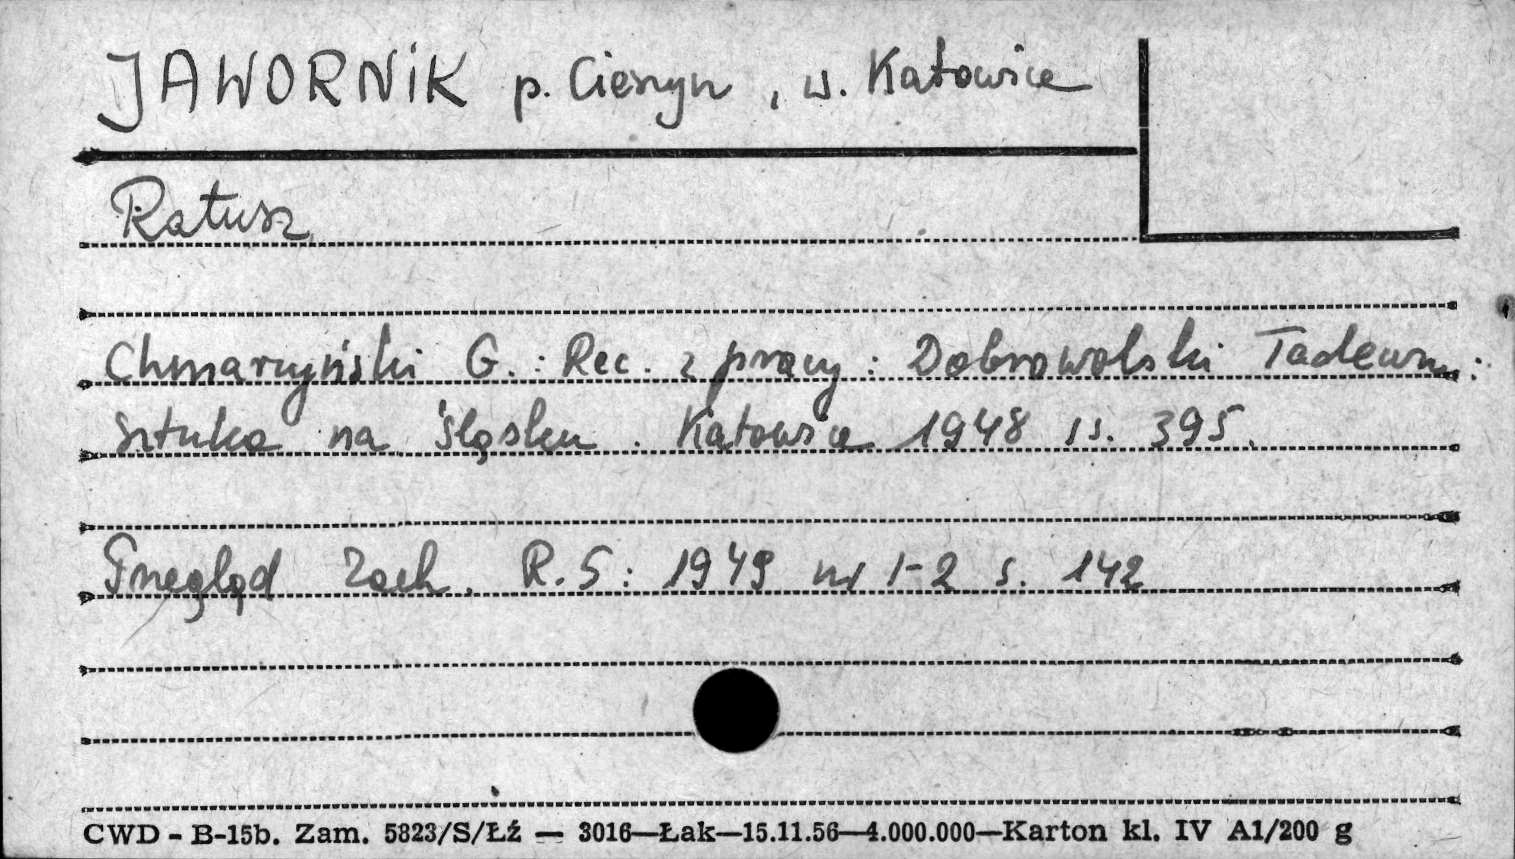 JAWORNIK p. Cieszyn, w. Katowice
Ratusz
Chmarzyński G. : Rec. z pracy : Dobrowolski Tadeusz :
Sztuka na Śląsku. Katowice 1948 ss. 395.
Przegląd Zach. R. 5 : 1949 nr 1-2 s. 142
CWD - B-15b. Zam. 5823/S/Łź — 3016—Łak—15.11.56—4.000.000—Karton kl. IV A1/200 g